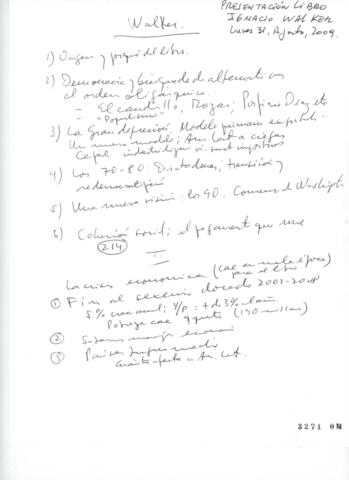 PRESENTACIÓN LIBRO
IGNACIO WALKER
Lunes 31, Agosto, 2009.
Walker.
1) Origen y porqué del libro.
2) Democracia y búsqueda de alternativas
al orden oligárquico
- El caudillo; Rozas; Porfirio Díaz, etc
- "Populismo"
3) La Gran depresión. Modelo primario exportador.
Un nuevo modelo; Am. Lat. a ciegas
Cepal industrialización sust. import
4) Los 70-80. Dictadores, transición y
redemocratización
5) Una nueva visión: los 90. Consenso de Washington
6) Cohesión social; el pegamento que une
214
La crisis económica (cae en mala época
para el libro
① Fin al sexenio dorado 2003-2008
5% crec anual; Y/p = + d 3% al año
Pobreza cae 9 puntos (190 millones)
②
③ Países ingreso medio
Cuánto afecta a Am. Lat.
3271 0N